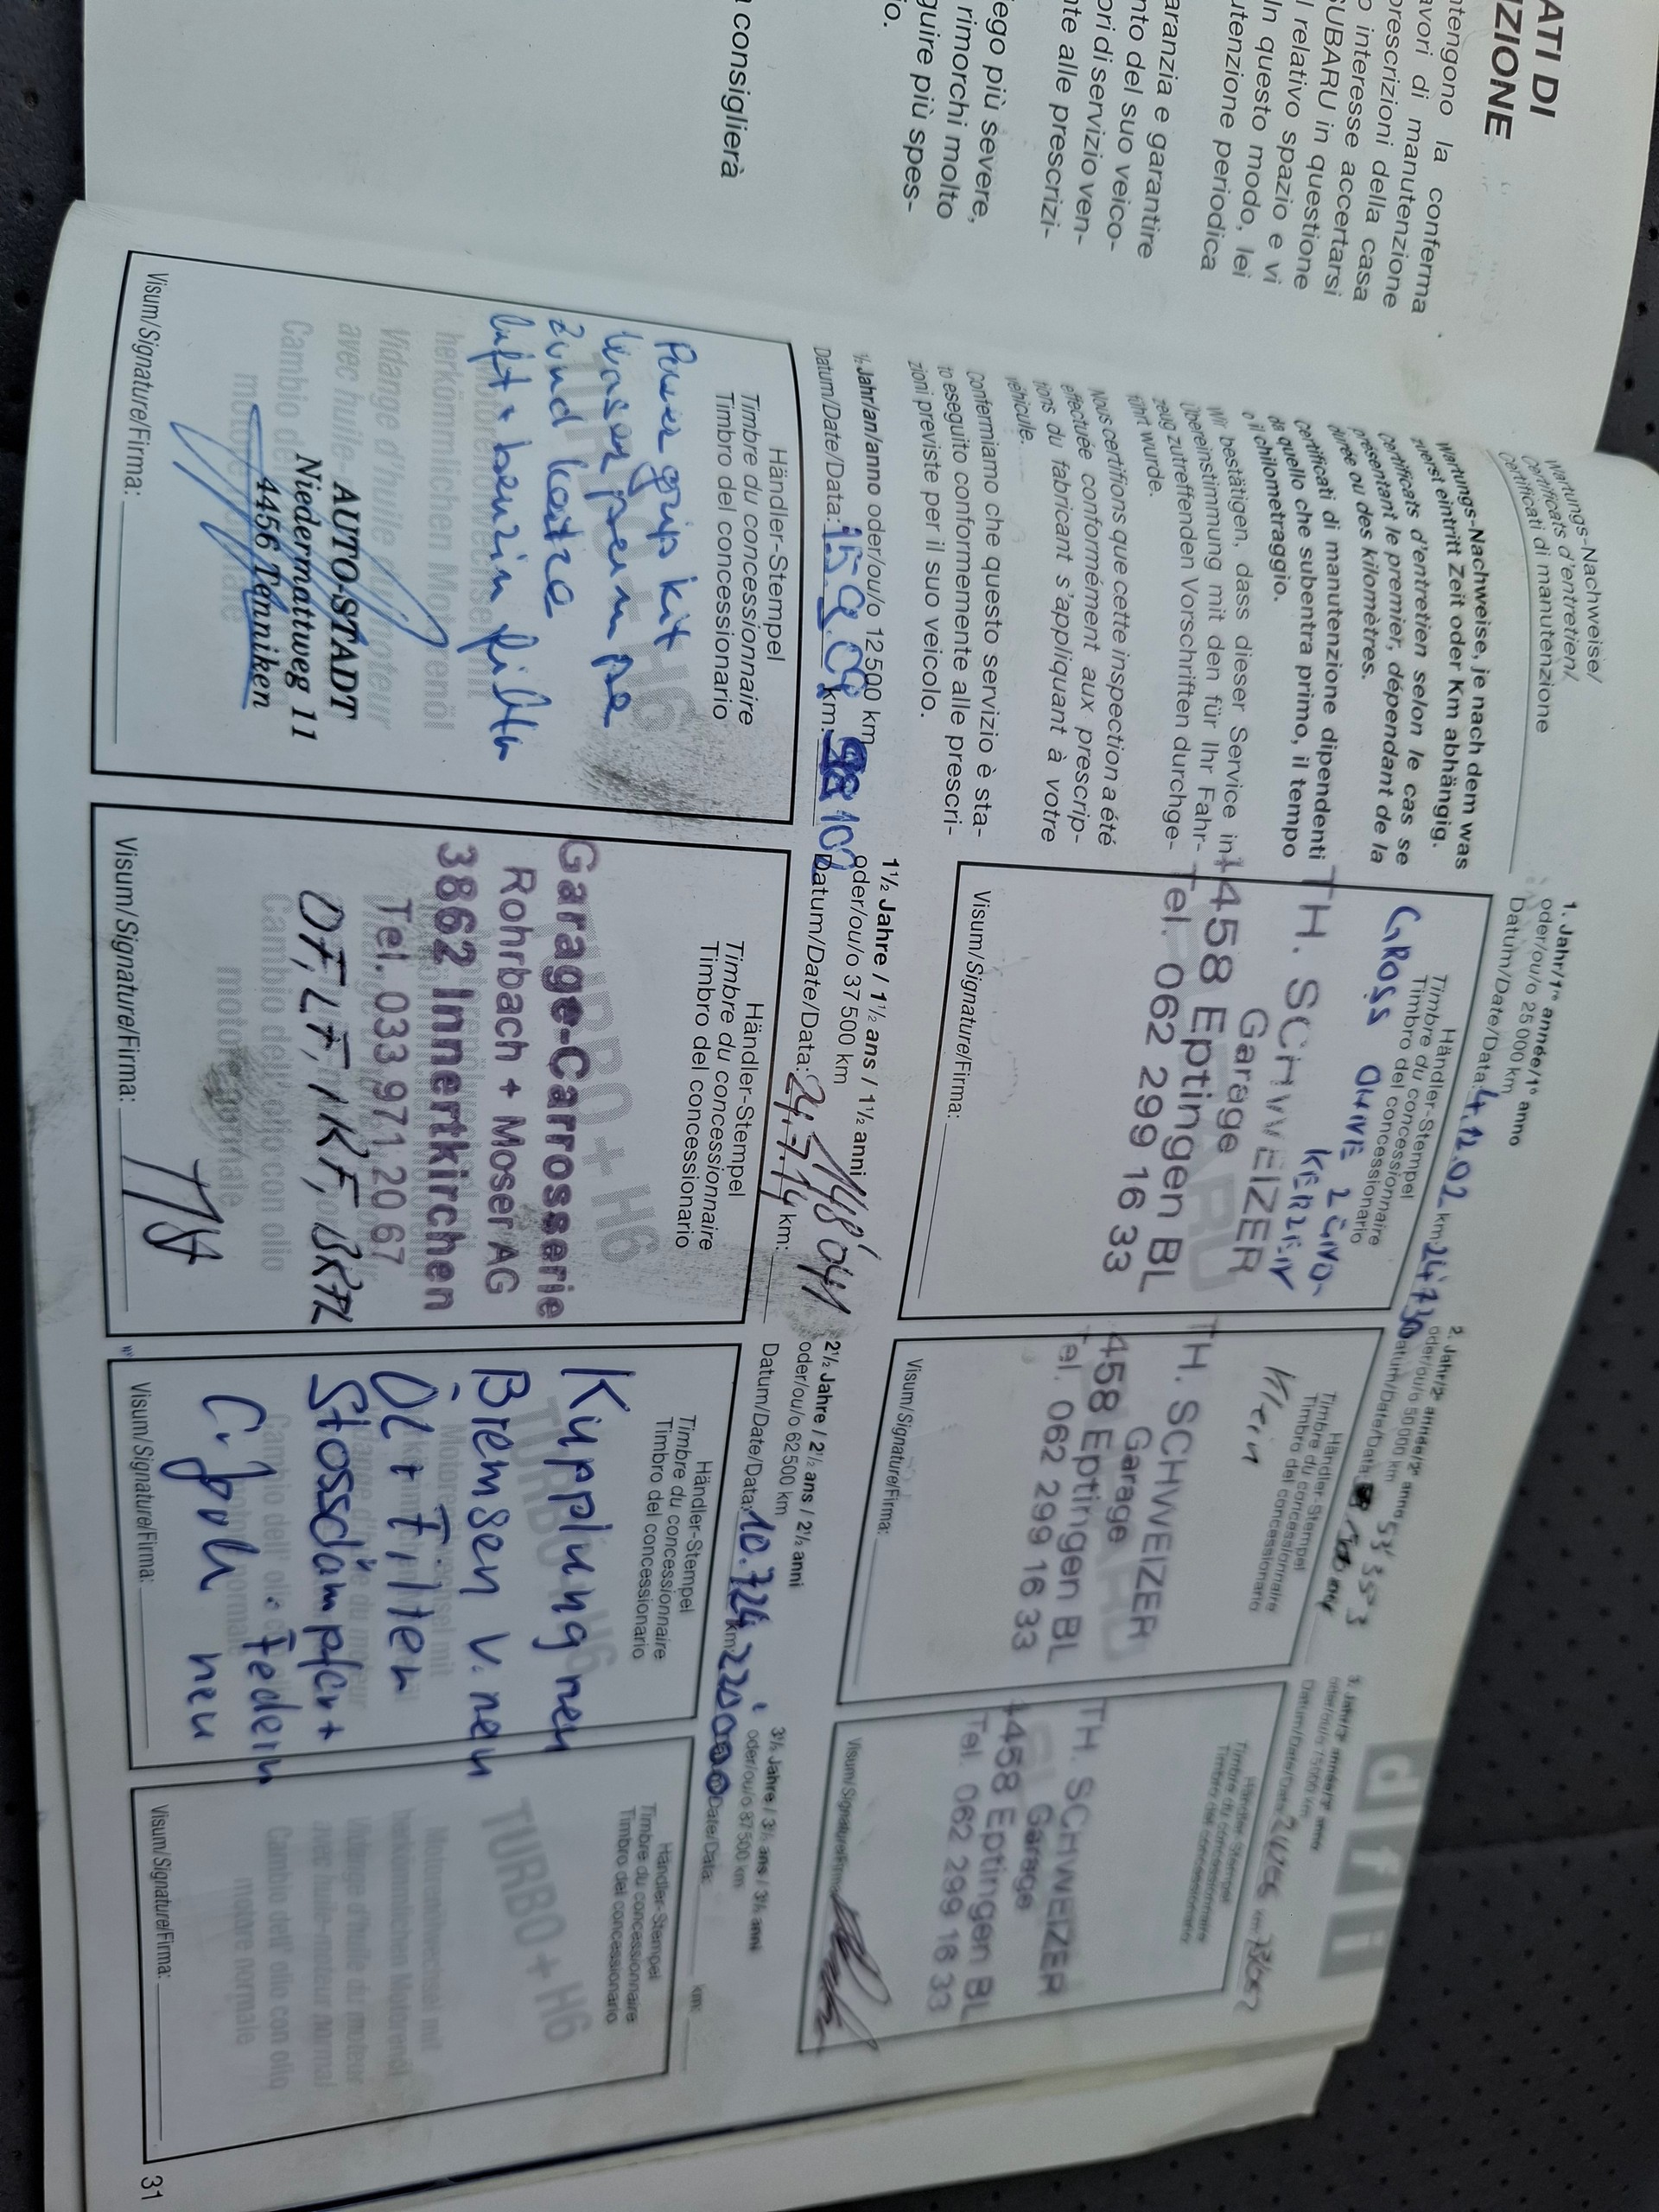 ATI DI
IZIONE
ntengono la conferma
avori di manutenzione
prescrizioni della casa
o interesse accertarsi
SUBARU in questione
l relativo spazio e vi
In questo modo, lei
utenzione periodica
aranzia e garantire
nto del suo veico-
ori di servizio ven-
te alle prescrizi-
ego più severe,
rimorchi molto
guire più spes-
io.
consiglierà
Wartungs-Nachweise/
Certificats d'entretien/
Certificati di manutenzione
Wartungs-Nachweise, je nach dem was
zuerst eintritt Zeit oder Km abhängig.
Certificats d'entretien selon le cas se
présentant le premier, dépendant de la
durée ou des kilomètres.
Certificati di manutenzione dipendenti
da quello che subentra primo, il tempo
o il chilometraggio.
Wir bestätigen, dass dieser Service in
Übereinstimmung mit den für Ihr Fahr-
zeug zutreffenden Vorschriften durchge-
führt wurde.
Nous certifions que cette inspection a été
effectuée conformément aux prescrip-
tions du fabricant s'appliquant à votre
véhicule.
Confermiamo che questo servizio è sta-
to eseguito conformemente alle prescri-
zioni previste per il suo veicolo.
1. Jahr/1re année/1o anno
oder/ou/o 25 000 km
Datum/Date/Data: 4.12.02 km: 24'730
Händler-Stempel
Timbre du concessionnaire
Timbro del concessionario
GROSS OHNE ZÜND-
KERZEN
TH. SCHWEIZER
Garage
4458 Eptingen BL
Tel. 062 299 16 33
Visum/Signature/Firma:
2. Jahr/2e année/2o anno 53'353
oder/ou/o 50 000 km
Datum/Date/Data:
Händler-Stempel
Timbre du concessionnaire
Timbro del concessionario
Klein
TH. SCHWEIZER
Garage
4458 Eptingen BL
Tel. 062 299 16 33
Visum/Signature/Firma:
d f i
3. Jahr/3e année/3o anno
oder/ou/o 75 000 km
Datum/Date/Data: km:
Händler-Stempel
Timbre du concessionnaire
Timbro del concessionario
TH. SCHWEIZER
Garage
4458 Eptingen BL
Tel. 062 299 16 33
Visum/Signature/Firma:
½ Jahr/an/anno oder/ou/o 12 500 km
Datum/Date/Data: 15.9.09 km: 102
Händler-Stempel
Timbre du concessionnaire
Timbro del concessionario
Power grip kit
Wasserpumpe
Zündkerze
luft + benzin filter
AUTO-STADT
Niedermattweg 11
4456 Tenniken
Visum/Signature/Firma:
1½ Jahre / 1½ ans / 1½ anni
oder/ou/o 37 500 km 148'041
Datum/Date/Data: 24.7.14 km:
Händler-Stempel
Timbre du concessionnaire
Timbro del concessionario
TURBO + H6
Garage-Carrosserie
Rohrbach + Moser AG
3862 Innertkirchen
Tel. 033 971 20 67
OF, LF, IKF, BKFL
Visum/Signature/Firma:
2½ Jahre / 2½ ans / 2½ anni
oder/ou/o 62 500 km
Datum/Date/Data: 10.724 km: 220000
Händler-Stempel
Timbre du concessionnaire
Timbro del concessionario
Kupplung neu
Bremsen v. neu
ÖL + Filter
Stossdämpfer +
Federn
neu
Visum/Signature/Firma:
3½ Jahre / 3½ ans / 3½ anni
oder/ou/o 87 500 km
Date/Data: km:
Händler-Stempel
Timbre du concessionnaire
Timbro del concessionario
TURBO + H6
Motorenölwechsel mit
herkömmlichen Motorenöl
Vidange d'huile du moteur
avec huile-moteur normal
Cambio dell' olio con olio
motore normale
Visum/Signature/Firma:
31